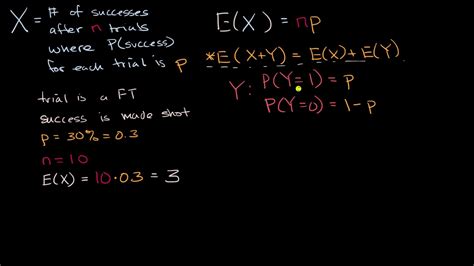 X = # of successes
after n trials
where P(success)
for each trial is p
trial is a FT
success is made shot
p = 30% = 0.3
n = 10
E(X) = 10 · 0.3 = 3
E(X) = np
*E(X+Y) = E(X) + E(Y)
Y: P(Y=1) = p
P(Y=0) = 1-p